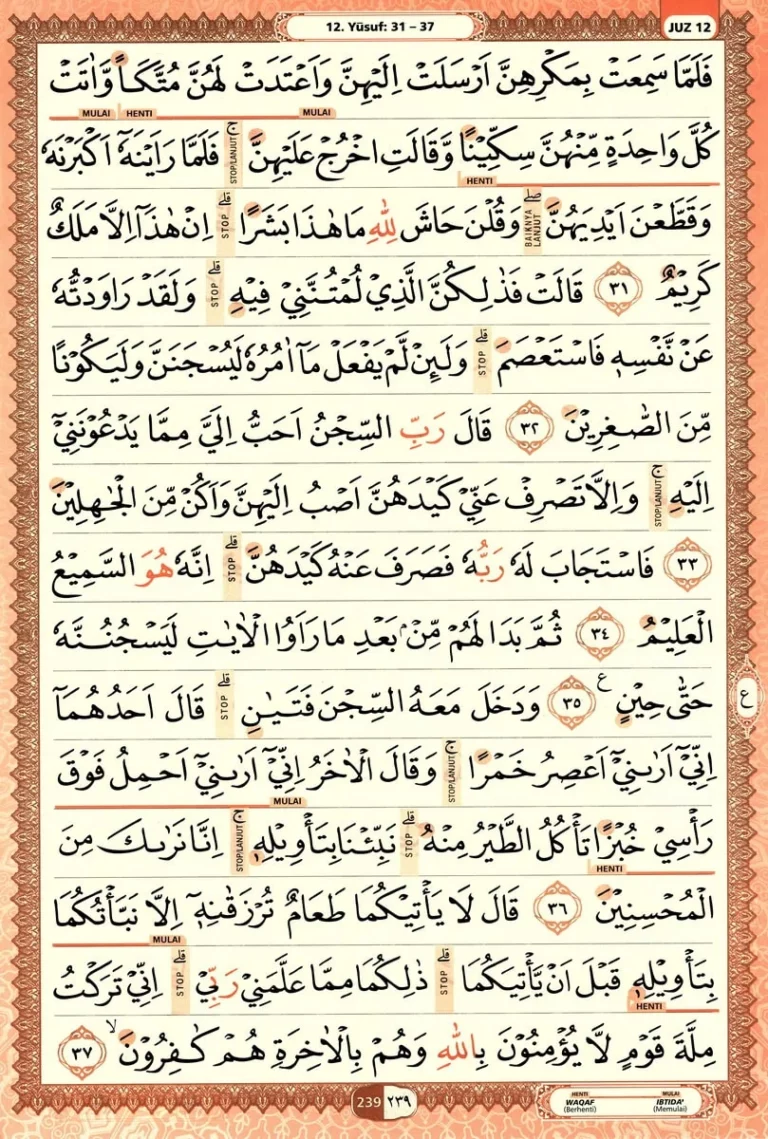 12. Yūsuf: 31 – 37
JUZ 12
فَلَمَّا سَمِعَتْ بِمَكْرِهِنَّ اَرْسَلَتْ اِلَيْهِنَّ وَاَعْتَدَتْ لَهُنَّ مُتَّكَـاً وَّاٰتَتْ
MULAI HENTI MULAI
كُلَّ وَاحِدَةٍ مِّنْهُنَّ سِكِّيْنًا وَّقَالَتِ اخْرُجْ عَلَيْهِنَّ ۚ فَلَمَّا رَاَيْنَهٗٓ اَكْبَرْنَهٗ
STOP/LANJUT
HENTI
وَقَطَّعْنَ اَيْدِيَهُنَّ ۖ وَقُلْنَ حَاشَ لِلّٰهِ مَا هٰذَا بَشَرًا ۗ اِنْ هٰذَآ اِلَّا مَلَكٌ
BAIKNYA LANJUT STOP
كَرِيْمٌ ٣١ قَالَتْ فَذٰلِكُنَّ الَّذِيْ لُمْتُنَّنِيْ فِيْهِ ۗ وَلَقَدْ رَاوَدْتُّهٗ
STOP
عَنْ نَّفْسِهٖ فَاسْتَعْصَمَ ۗ وَلَىِٕنْ لَّمْ يَفْعَلْ مَآ اٰمُرُهٗ لَيُسْجَنَنَّ وَلَيَكُوْنًا
STOP
مِّنَ الصّٰغِرِيْنَ ٣٢ قَالَ رَبِّ السِّجْنُ اَحَبُّ اِلَيَّ مِمَّا يَدْعُوْنَنِيْٓ
اِلَيْهِ ۚ وَاِلَّا تَصْرِفْ عَنِّيْ كَيْدَهُنَّ اَصْبُ اِلَيْهِنَّ وَاَكُنْ مِّنَ الْجٰهِلِيْنَ
STOP/LANJUT
٣٣ فَاسْتَجَابَ لَهٗ رَبُّهٗ فَصَرَفَ عَنْهُ كَيْدَهُنَّ ۗ اِنَّهٗ هُوَ السَّمِيْعُ
STOP
الْعَلِيْمُ ٣٤ ثُمَّ بَدَا لَهُمْ مِّنْۢ بَعْدِ مَا رَاَوُا الْاٰيٰتِ لَيَسْجُنُنَّهٗ
حَتّٰى حِيْنٍ ٣٥ ع وَدَخَلَ مَعَهُ السِّجْنَ فَتَيٰنِ ۗ قَالَ اَحَدُهُمَآ
STOP
ع
اِنِّيْٓ اَرٰىنِيْٓ اَعْصِرُ خَمْرًا ۚ وَقَالَ الْاٰخَرُ اِنِّيْٓ اَرٰىنِيْٓ اَحْمِلُ فَوْقَ
STOP/LANJUT
MULAI
رَأْسِيْ خُبْزًا تَأْكُلُ الطَّيْرُ مِنْهُ ۗ نَبِّئْنَا بِتَأْوِيْلِهٖ ۚ اِنَّا نَرٰىكَ مِنَ
STOP STOP/LANJUT
HENTI
الْمُحْسِنِيْنَ ٣٦ قَالَ لَا يَأْتِيْكُمَا طَعَامٌ تُرْزَقٰنِهٖٓ اِلَّا نَبَّأْتُكُمَا
MULAI
بِتَأْوِيْلِهٖ قَبْلَ اَنْ يَّأْتِيَكُمَا ۗ ذٰلِكُمَا مِمَّا عَلَّمَنِيْ رَبِّيْ ۗ اِنِّيْ تَرَكْتُ
STOP STOP
HENTI
مِلَّةَ قَوْمٍ لَّا يُؤْمِنُوْنَ بِاللّٰهِ وَهُمْ بِالْاٰخِرَةِ هُمْ كٰفِرُوْنَ ۙ ٣٧
239 ٢٣٩
HENTI WAQAF (Berhenti)
MULAI IBTIDA' (Memulai)